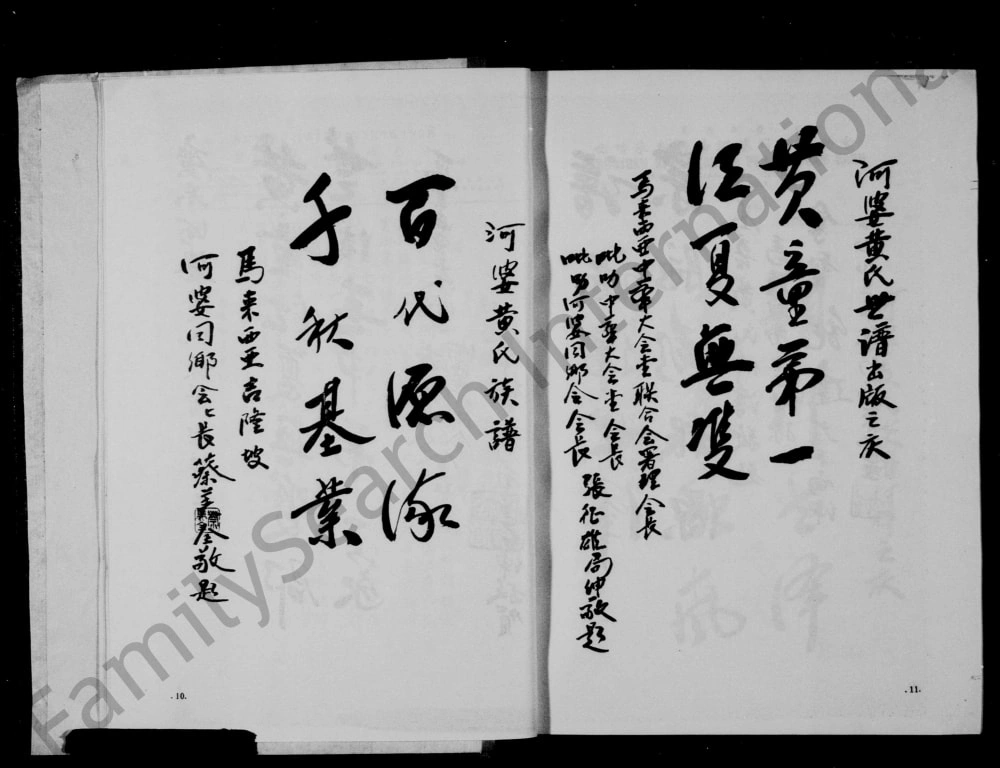 河婆黄氏族譜
百代源流
千秋基業
馬来西亚吉隆坡
河婆同鄉会々長蔡敬題
.10.
河婆黄氏世譜出版之庆
黄童第一
江夏無雙
马来西亚中華大会堂联合会署理会長
吡叻中華大会堂会長
吡叻河婆同鄉会会長 張征雄局绅敬題
.11.
FamilySearch International